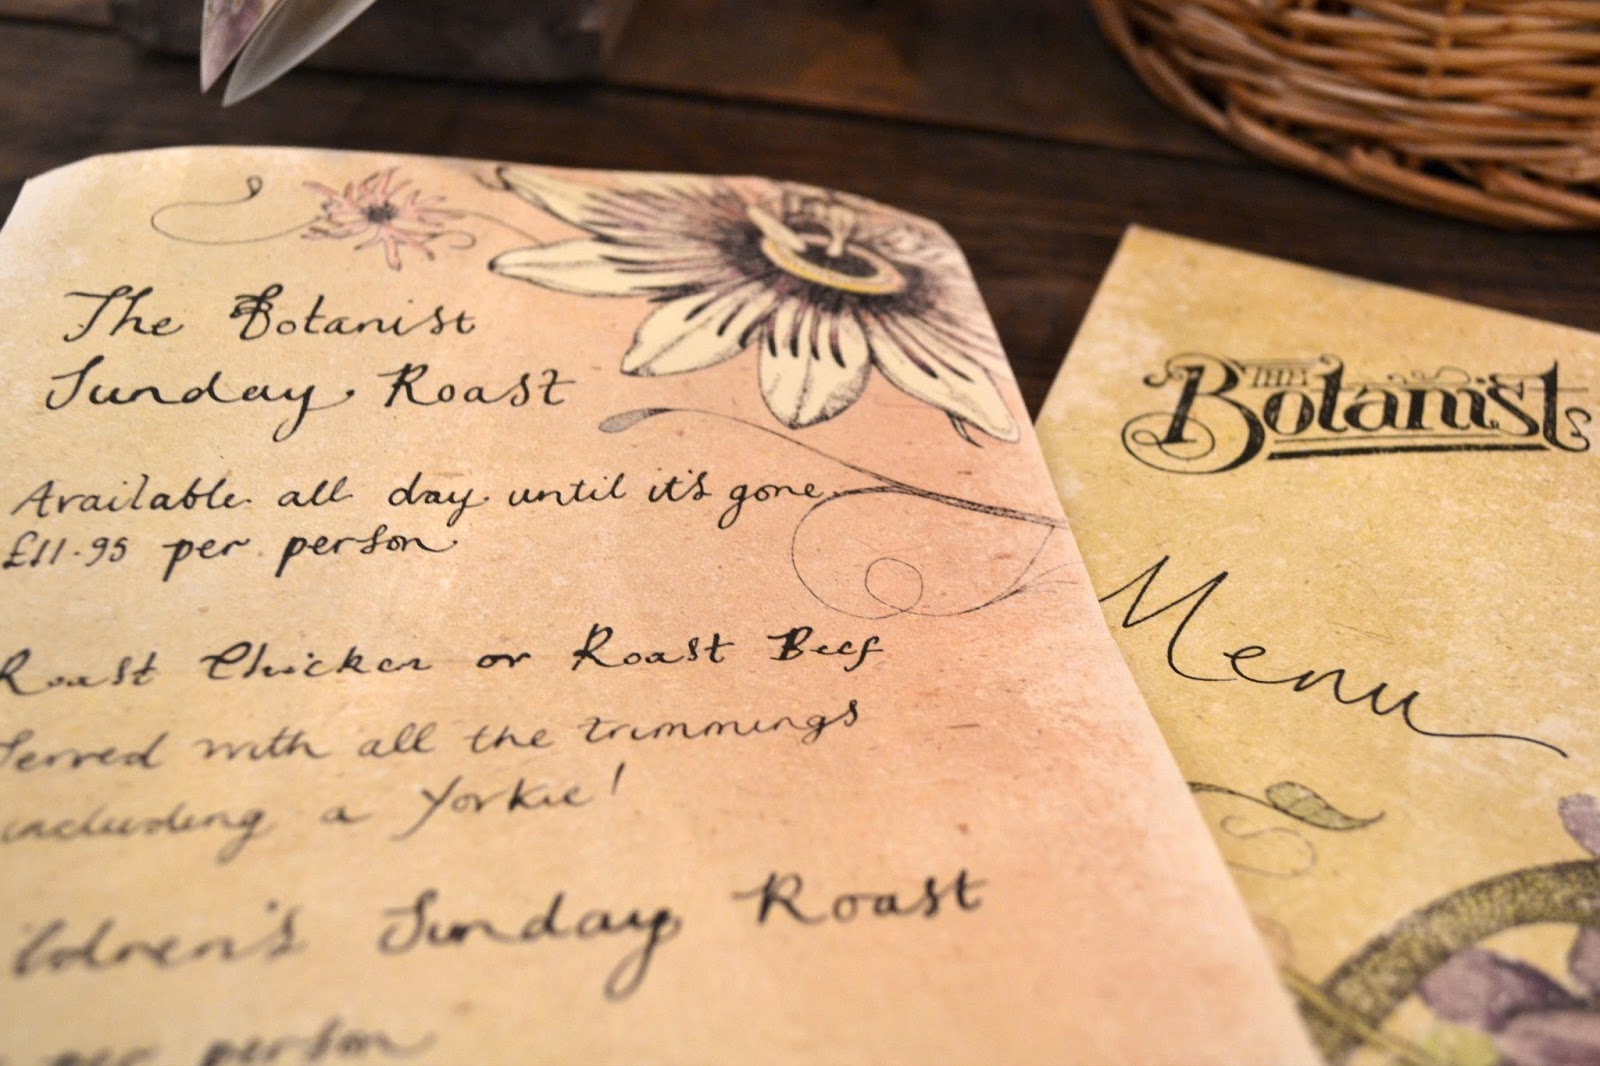 The Botanist
Sunday Roast
Available all day until it's gone.
£11.95 per person
Roast Chicken or Roast Beef
Served with all the trimmings
including a Yorkie!
ildren's Sunday Roast
per person
THE
Botanist
Menu